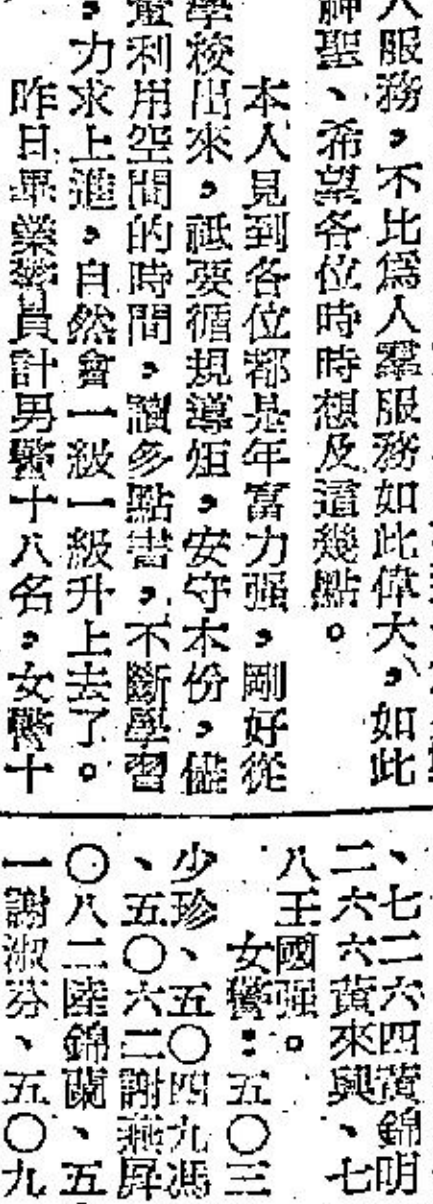 人服務，不比爲人羣服務如此偉大，如此
神聖、希望各位時時想及這幾點。
本人見到各位都是年富力强，剛好從
學校出來，祗要循規導矩，安守本份，儘
量利用空間的時間，讀多點書，不斷學習
，力求上進，自然會一級一級升上去了。
昨日畢業警員計男警十八名，女警十
、七二六四黃錦明
二六六黃來興、七
八王國强。
女警：五〇三
少珍、五〇四九馮
、五〇六二謝燕屏
〇八二陸錦蘭、五
一謝淑芬、五〇九